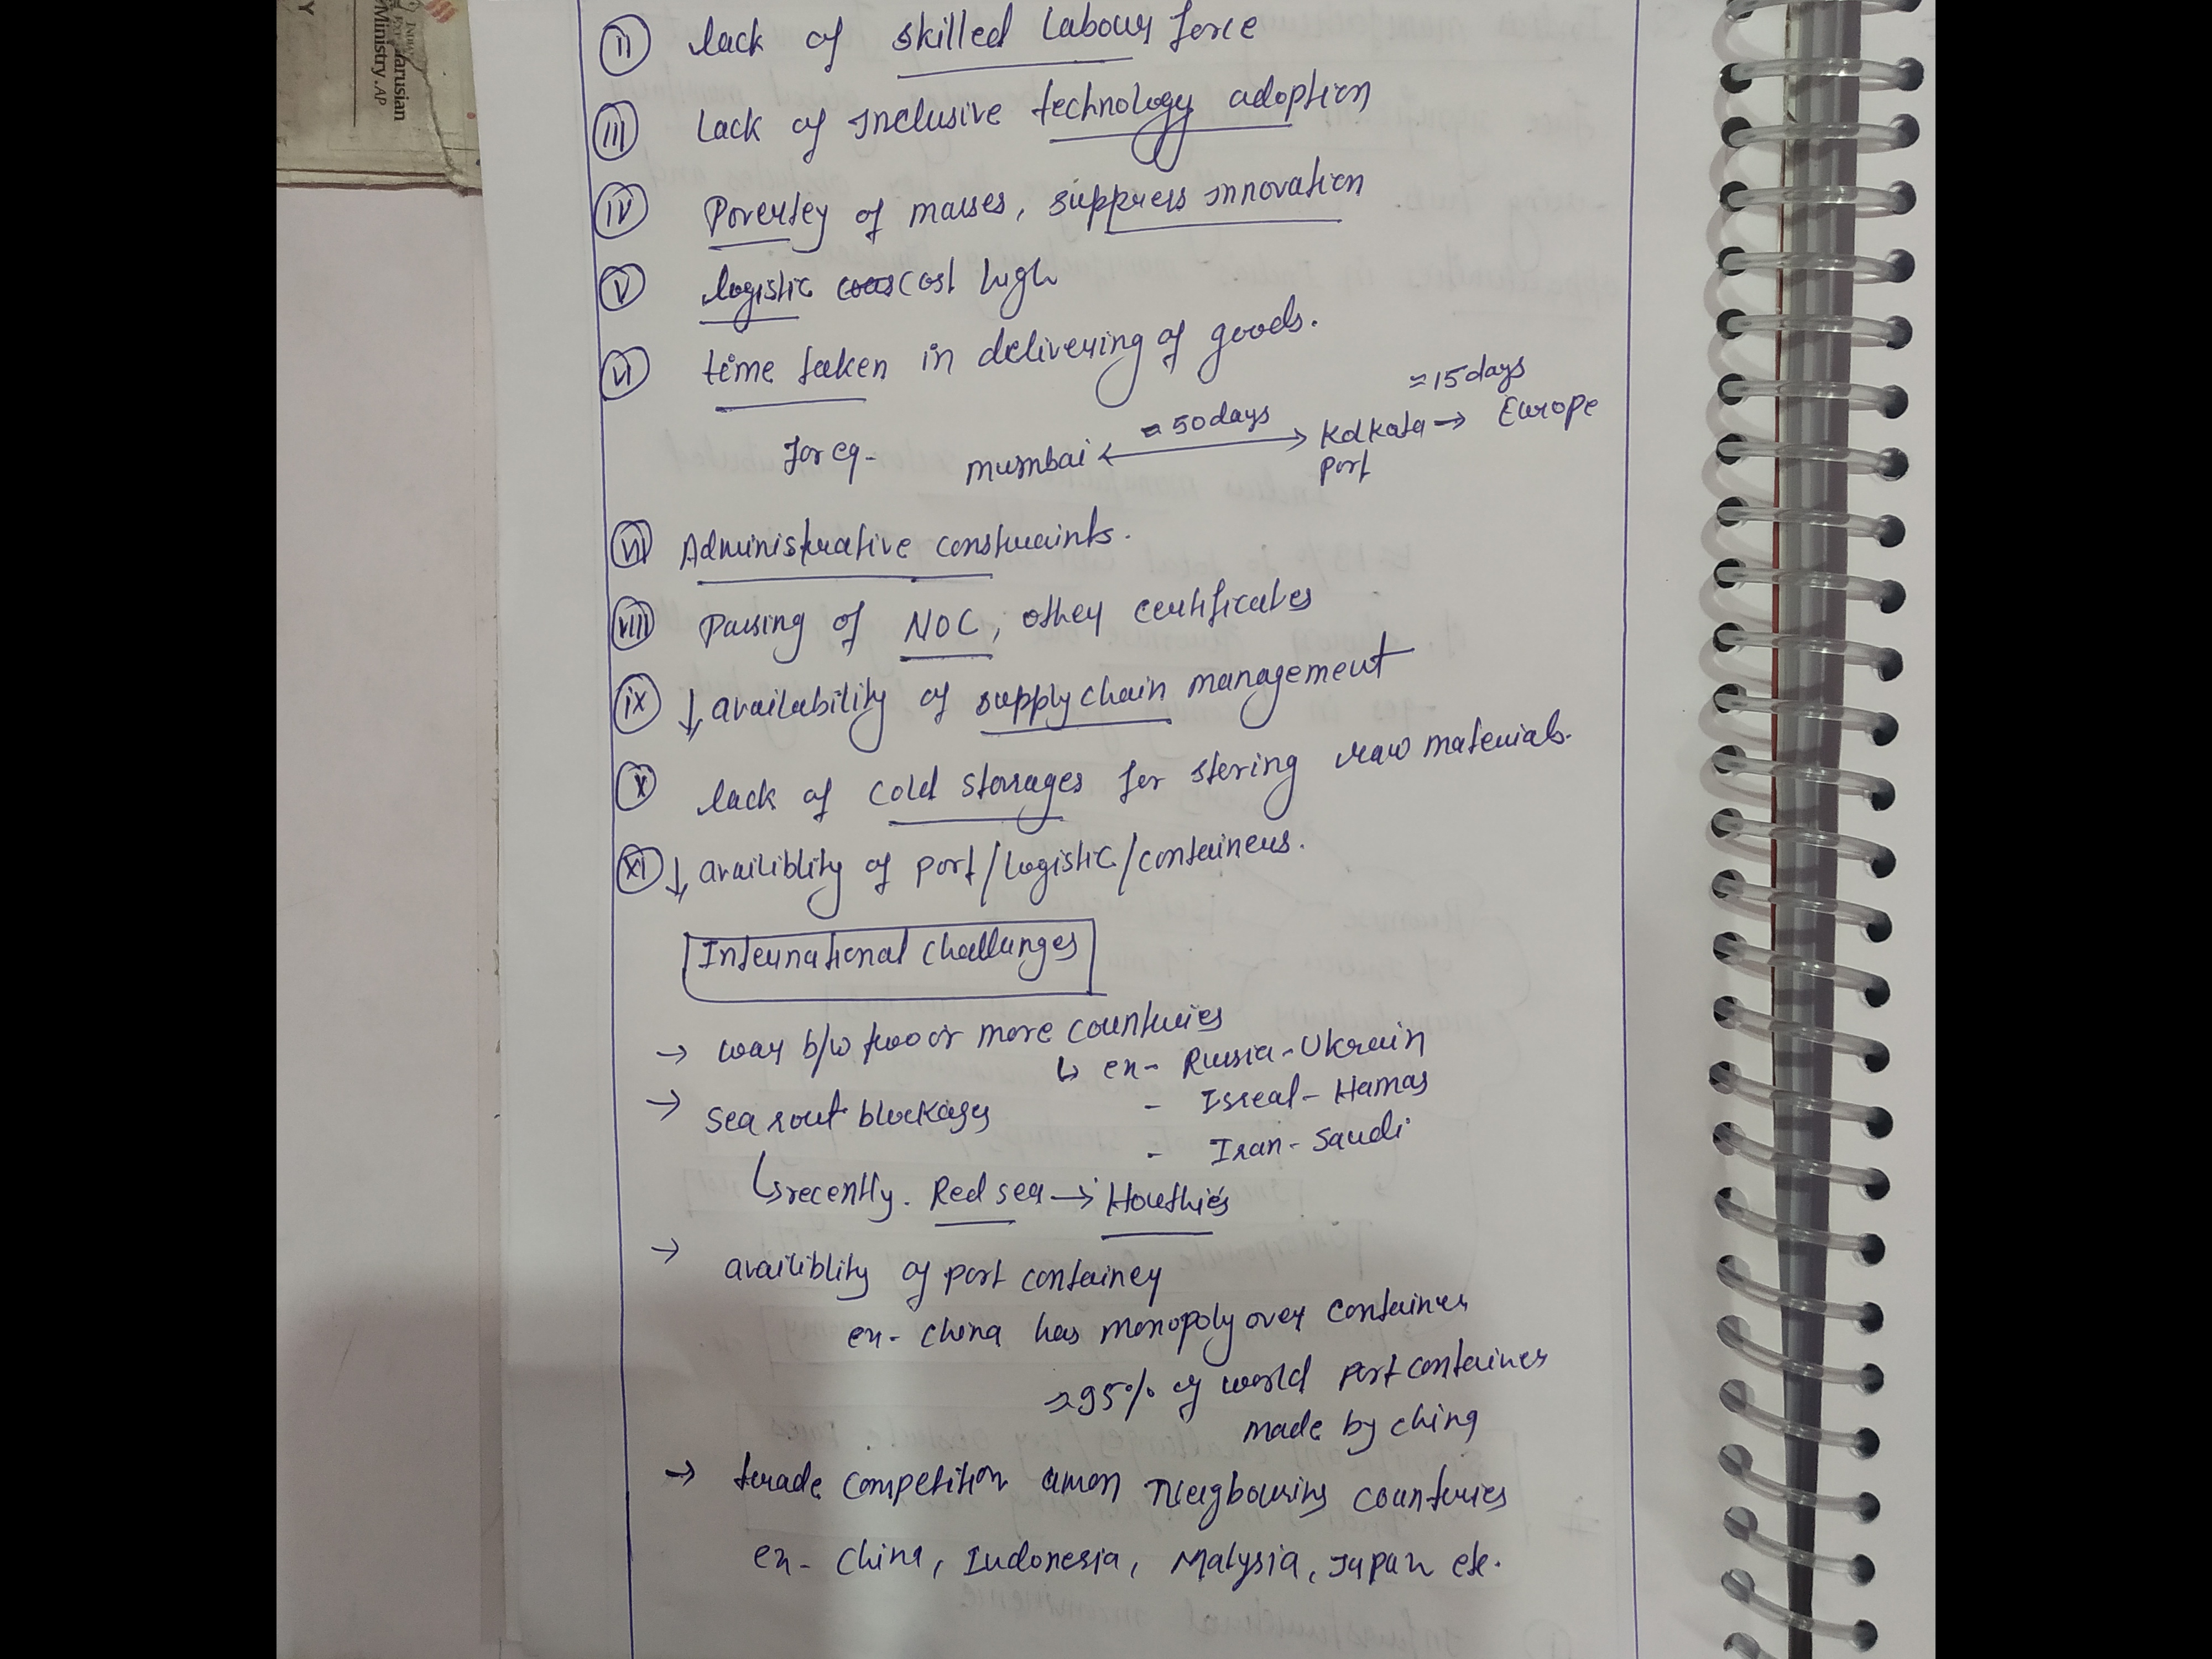 ii) lack of skilled labour force
iii) Lack of inclusive technology adoption
iv) Povertey of masses, suppress innovation
v) logistic cost high
vi) time taken in delivering of goods.
≈15 days
≈50 days
for eg - mumbai ↔ Kolkata → Europe
port
vii) Administrative constraints.
viii) Passing of NOC, other certificates
ix) ↓ availability of supply chain management
x) lack of cold storages for storing raw materials.
xi) ↓ availiblity of port/logistic/containers.
International challanges
→ war b/w two or more countries
↳ ex- Russia-Ukrain
- Isreal-Hamas
- Iran-Saudi
→ sea rout blockages
↳ recently. Red sea → Houthies
→ availiblity of port container
ex- china has monopoly over container
≈95% of world port containers
made by china
→ trade competition amon Neigbouring countries
ex- China, Indonesia, Malysia, Japan etc.
Ministry.AP